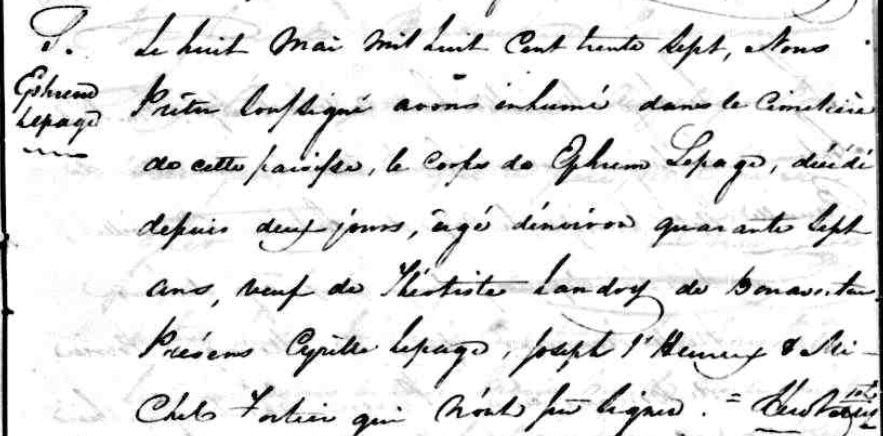 S.
Ephrem
Lepage
Le huit Mai Mil huit Cent trente Sept, Nous
Prêtre Soussigné avons inhumé dans le Cimetière
de cette paroisse, le Corps de Ephrem Lepage, décédé
depuis deux jours, âgé d'environ quarante Sept
ans, veuf de Théotiste Landry de Bonaventure
Présens Cyrille Lepage, Joseph l'Heureux & Mi-
chel Fortier qui n'ont pu signer. =